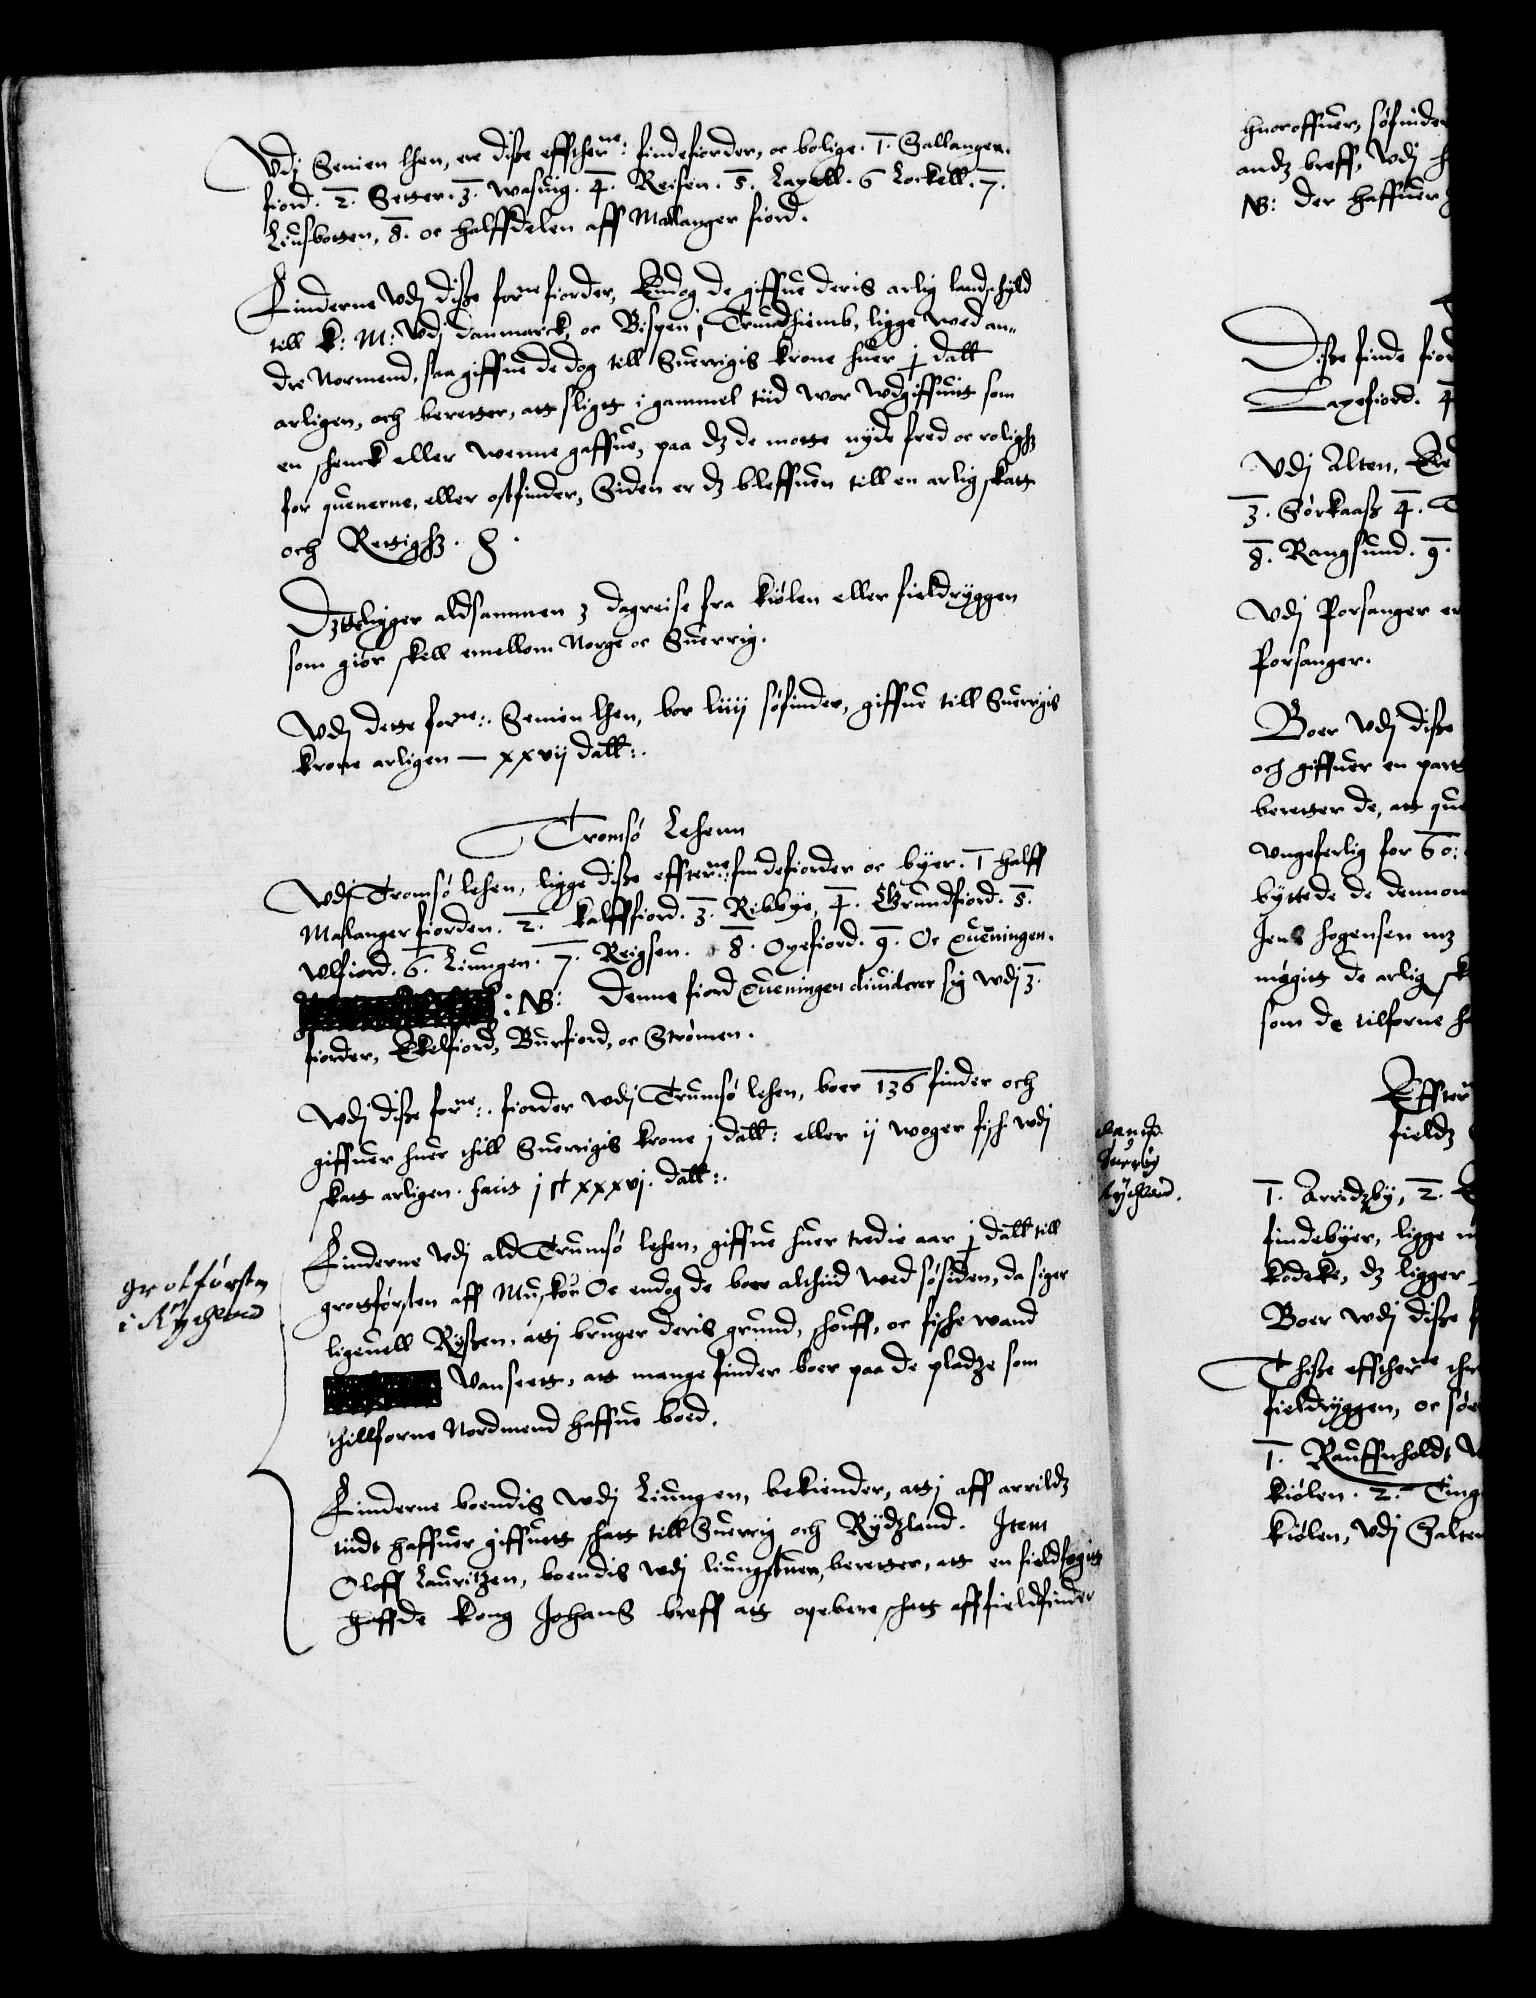 Vdj Senien lhen, ere diße effthe:ne: findefiorder, oc bolige. 1. Sallangen.
fiord. 2. Setter. 3. Wasuig. 4. Reisen. 5. Laxell. 6 Lockell. 7.
Liusbotten, 8. oc halffdelen aff Mallanger fiord.
Finderne Vdj diße forne fiorder, Endog de giffue deris arlig landschyld
till K: M: Vdj danmarck, oc Bispen j Trundhiemb, ligge wed an-
dre Normend, saa giffue de dog till Suerrigis krone huer j dall
arligen, och beretter, att sligtt i gammel tiid wor wdgiffuitt som
en schenck eller wenne gaffue, paa dz de motte nyde fred oc rolighz
for quenerne, eller ostfinder, Siden er dz bleffuen till en arlig skatt
och Rettighz.
Dztte ligger aldsammen 3 dagreise fra kiølen eller fieldryggen
som giør skell emellom Norge oc Suerrig.
Vdj dette forne: Senien lhen, bor liiij søfinder, giffue till Suerrigis
krone arligen — xxvij dall:.
Tromsø Lehenn
Vdj Tromsø lehen, ligge diße effterne: findefiorder oc byer. 1 halff
Malangerfiorden. 2. kalfffiord. 3. Ribbye, 4. Grundfiord. 5.
Vlfiord. 6. Liungen. 7. Reigsen. 8. Oxefiord. 9. Oc Queningen.
: NB: Denne fiord Queningen diuiderer sig wdj 3.
fiorder, Ekelfiord, Burfiord, oc Strømen.
Wdj diße forne: fiorder wdj Trumsø lehen, boer 136 finder och
giffuer huer thill Suerrigis krone j dall: eller ij woger fisch wdj
skatt arligen. facit j ct xxxvj. dall:.
Finderne Vdj ald Trumsø lehen, giffue huer tredie aar j dall till
grottførsten aff Muskou Oc endog de boer altiid wed søsiden, da siger
ligeuell Rysßen, att j bruger deris grund, skouff, oc fische wand
Vanseett, att mange finder boer paa de pladtze som
thillforne Nordmend haffue boed.
Finderne boendis Wdj Liungen, bekiender, att j aff arrildz
tiidt haffuer giffuett skatt till Suerrig och Rydzland. Item
Oloff Lauritzen, boendis wdj liungstuen, beretter, att en fieldfogitt
haffde kong Johans breff att opebere skatt aff fieldfinder
grotførsten
i Rychland
Suerrig
Rychland.
huoroffuer, søfinder
andz breff, Wdj
NB: der haffuer
Diße finde fior
Laxefiord. 4
Vdj Alten, Ere
3. Sørkaaß 4.
8. Rangsund. 9.
Vdj Porsanger er
Porsanger.
Boer Vdj diße
och giffuer en part
beretter de, att que
Vngeferlig for 60:
byttede de dennom
Jens hogensen mz
mogitt de arlig sk
som de tilforne h
Effter
fieldz
1. Arridzby, 2.
findebyer, ligge
kodeke, dz ligger
Boer wdj diße
Thiße effthe:ne
fieldryggen, oc sø
1. Rauffnholdt
kiølen. 2. Ting
kiølen, Vdj Salten